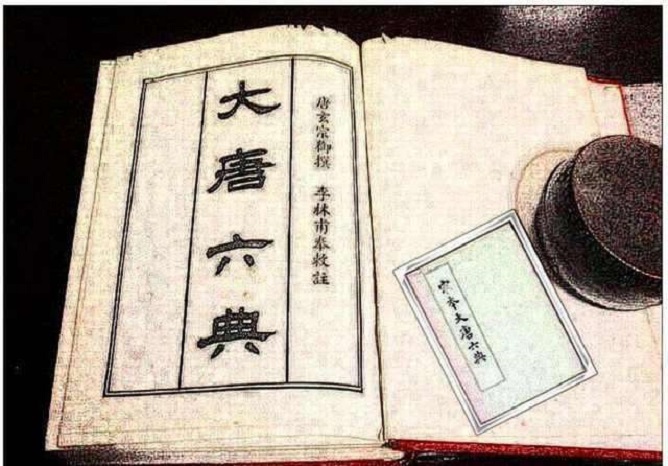 唐玄宗御撰 李林甫奉敕註
大唐六典
宋本大唐六典